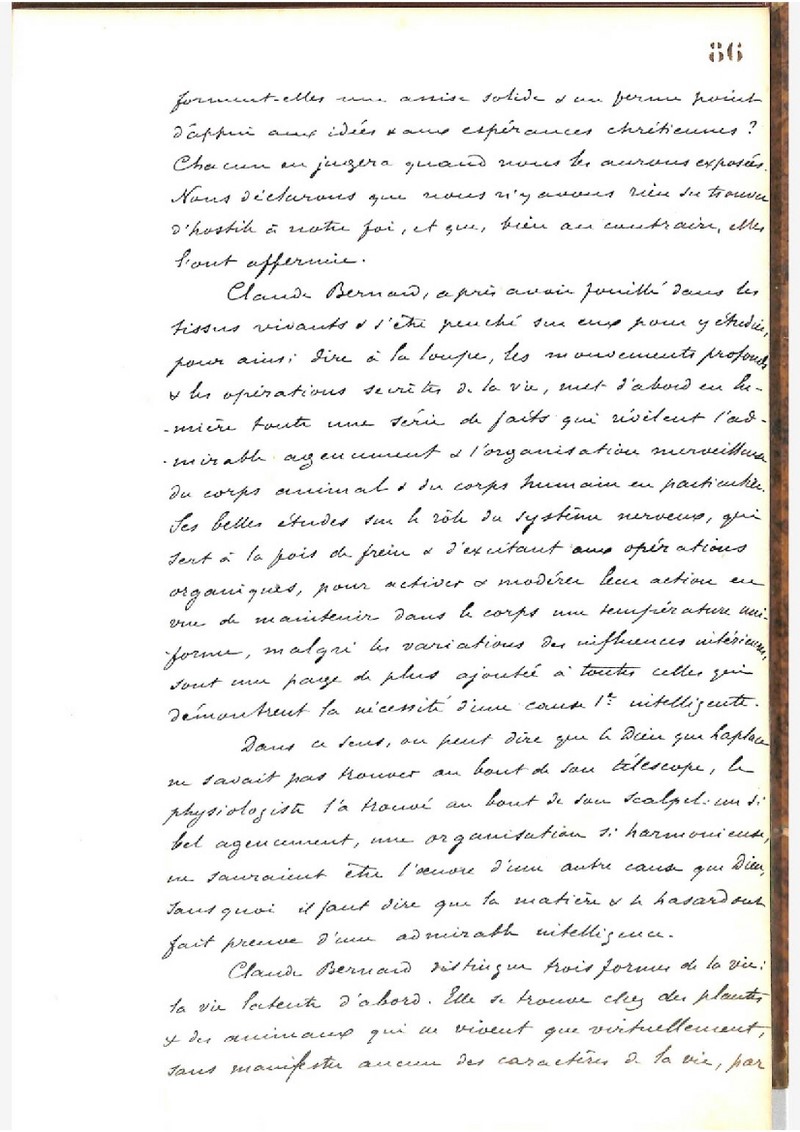 86
forment-elles une assise solide & un ferme point
d'appui aux idées & aux espérances chrétiennes ?
Chacun en jugera quand nous les aurons exposées.
Nous déclarons que nous n'y avons rien su trouver
d'hostile à notre foi, et que, bien au contraire, elles
l'ont affermie.
Claude Bernard, après avoir fouillé dans les
tissus vivants & s'être penché sur eux pour y étudier,
pour ainsi dire à la loupe, les mouvements profonds
& les opérations secrètes de la vie, met d'abord en lu-
-mière toute une série de faits qui révèlent l'ad-
-mirable agencement & l'organisation merveilleuse
du corps animal & du corps humain en particulier.
Ses belles études sur le rôle du système nerveux, qui
sert à la fois de frein & d'excitant aux opérations
organiques, pour activer & modérer leur action en
vue de maintenir dans le corps une température uni-
-forme, malgré les variations des influences intérieures,
sont une page de plus ajoutée à toutes celles qui
démontrent la nécessité d'une cause 1re intelligente.
Dans ce sens, on peut dire que le Dieu que Laplace
ne savait pas trouver au bout de son télescope, le
physiologiste l'a trouvé au bout de son scalpel : un si
bel agencement, une organisation si harmonieuse,
ne sauraient être l'œuvre d'une autre cause que Dieu,
sans quoi il faut dire que la matière & le hasard ont
fait preuve d'une admirable intelligence.
Claude Bernard distingue trois formes de la vie :
la vie latente d'abord. Elle se trouve chez des plantes
& des animaux qui ne vivent que virtuellement,
sans manifester aucun des caractères de la vie, par